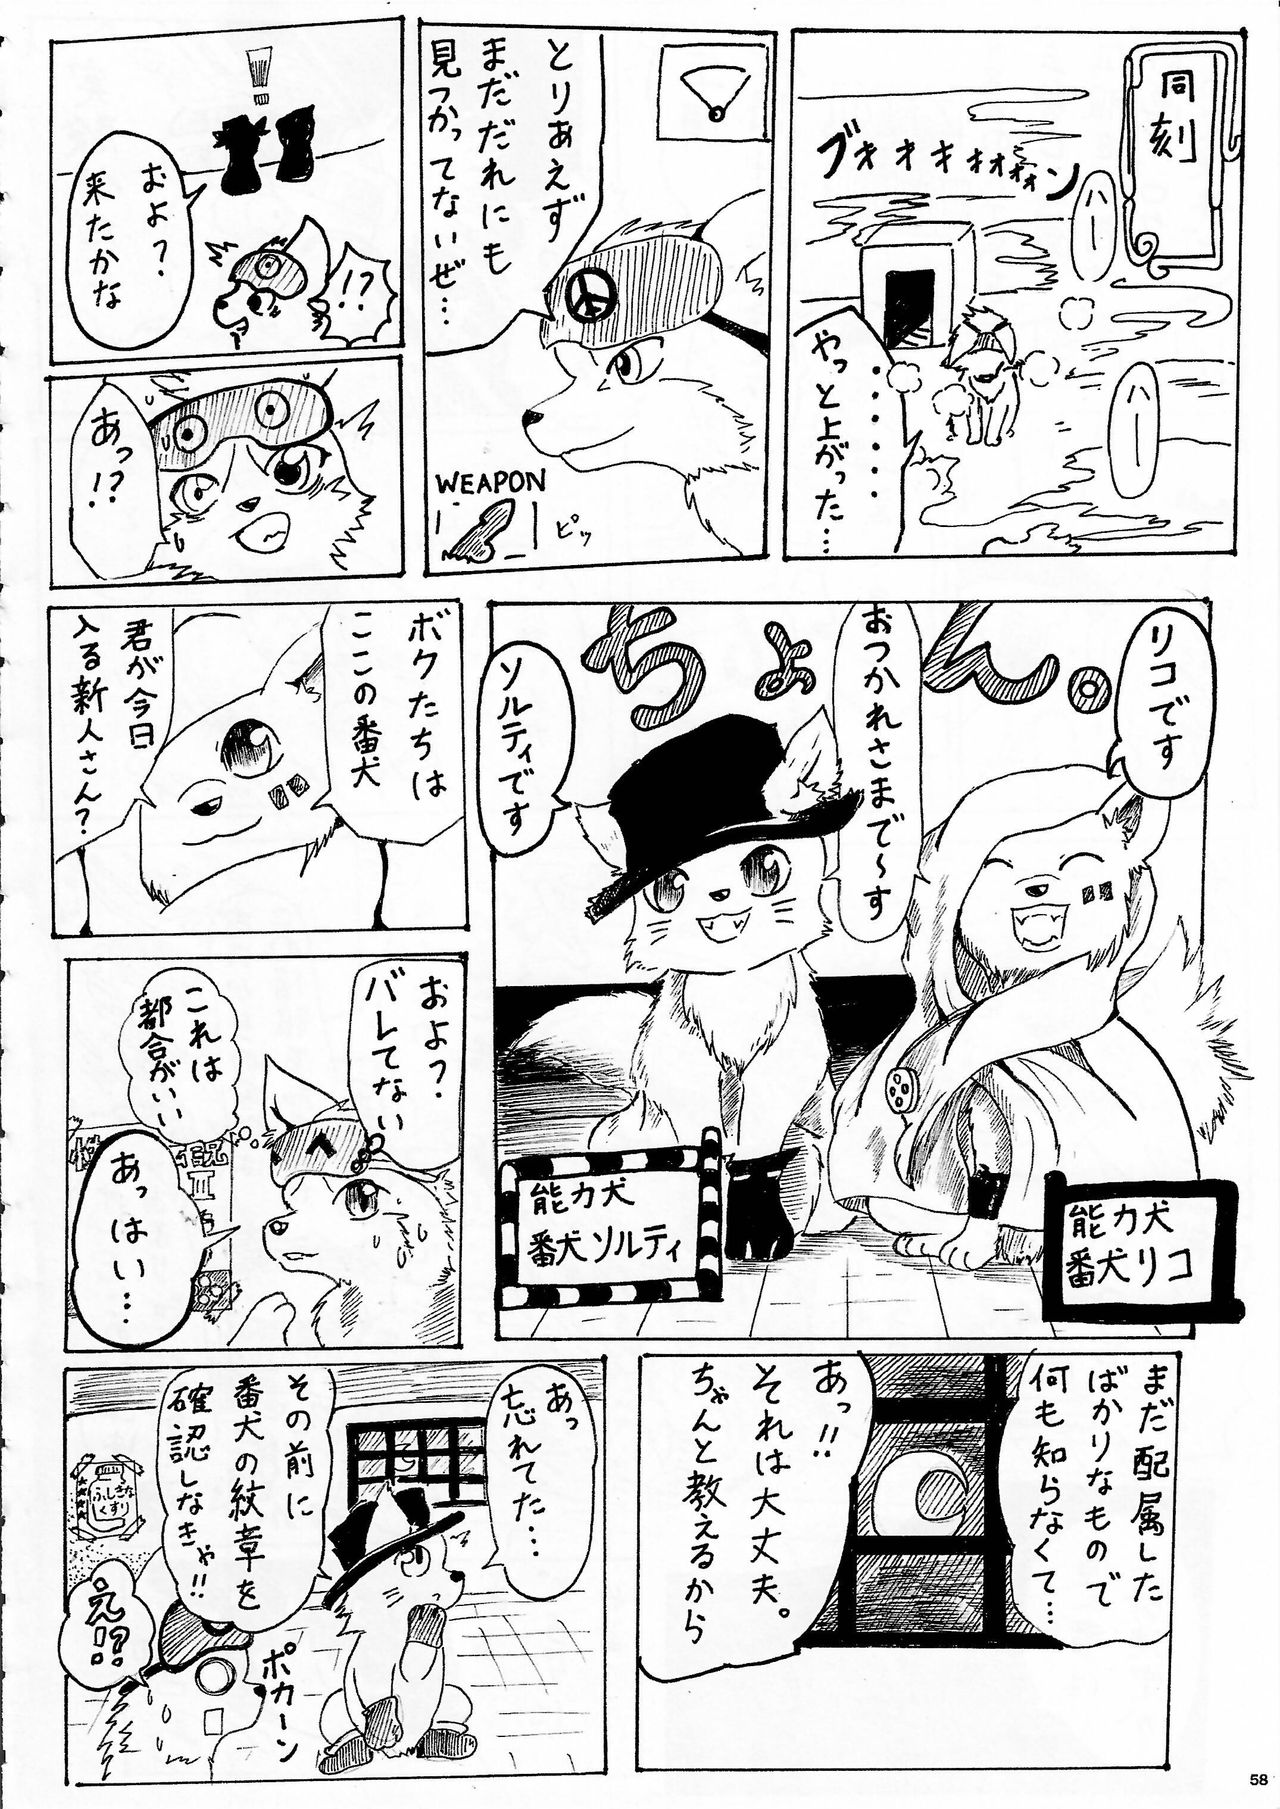 同刻
ブォオオォォォォン
ハー
ハー
・・・・・・
やっと上がった…
とりあえず
まだだれにも
見つかってないぜ…
WEAPON
ピッ
!
!?
およ?
来たかな
あっ!?
ちょん。
リコです
おつかれさまで〜す
ソルティです
能力犬
番犬リコ
能力犬
番犬ソルティ
ボクたちは
ここの番犬
君が今日
入る新人さん?
およ?
バレてない
これは
都合がいい
あっはい…
まだ配属した
ばかりなもので
何も知らなくて…
あっ!!
それは大丈夫。
ちゃんと教えるから
あっ
忘れてた…
その前に
番犬の紋章を
確認しなきゃ!!
ふしぎな
くすり
え!!?
ポカーン
58